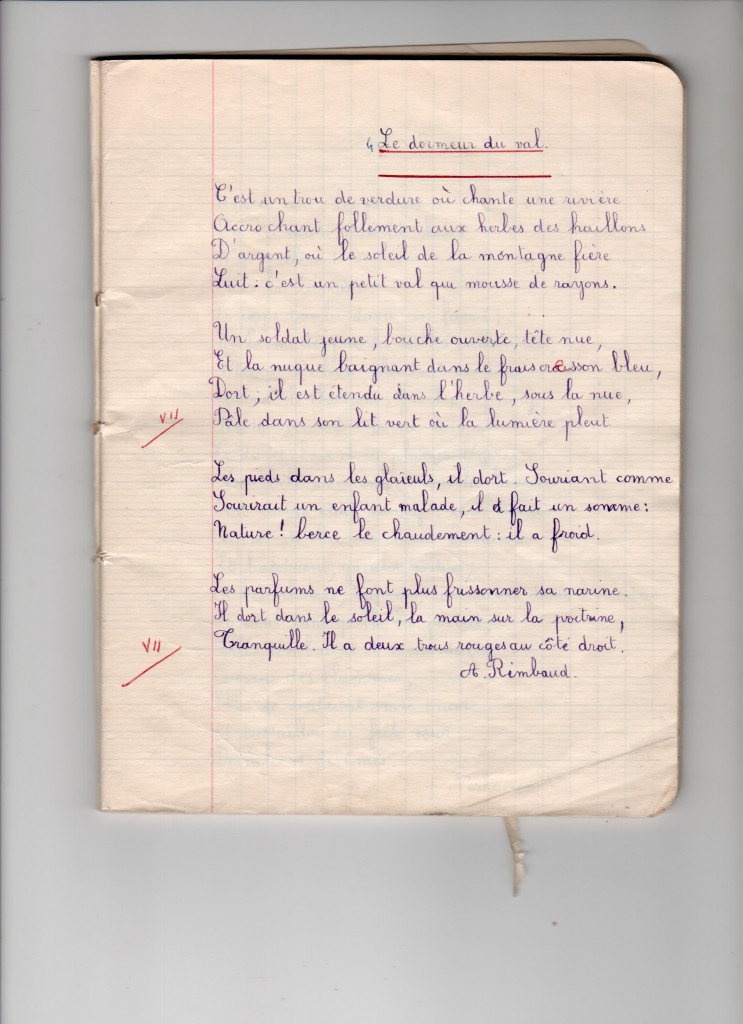 Le dormeur du val.
C'est un trou de verdure où chante une rivière
Accrochant follement aux herbes des haillons
D'argent, où le soleil de la montagne fière
Luit : c'est un petit val qui mousse de rayons.
Un soldat jeune, bouche ouverte, tête nue,
Et la nuque baignant dans le frais cresson bleu,
Dort ; il est étendu dans l'herbe, sous la nue,
VII
Pâle dans son lit vert où la lumière pleut
Les pieds dans les glaïeuls, il dort. Souriant comme
Sourirait un enfant malade, il fait un somme :
Nature ! berce le chaudement : il a froid.
Les parfums ne font plus frissonner sa narine.
Il dort dans le soleil, la main sur la poitrine,
VII
Tranquille. Il a deux trous rouges au côté droit.
A. Rimbaud.